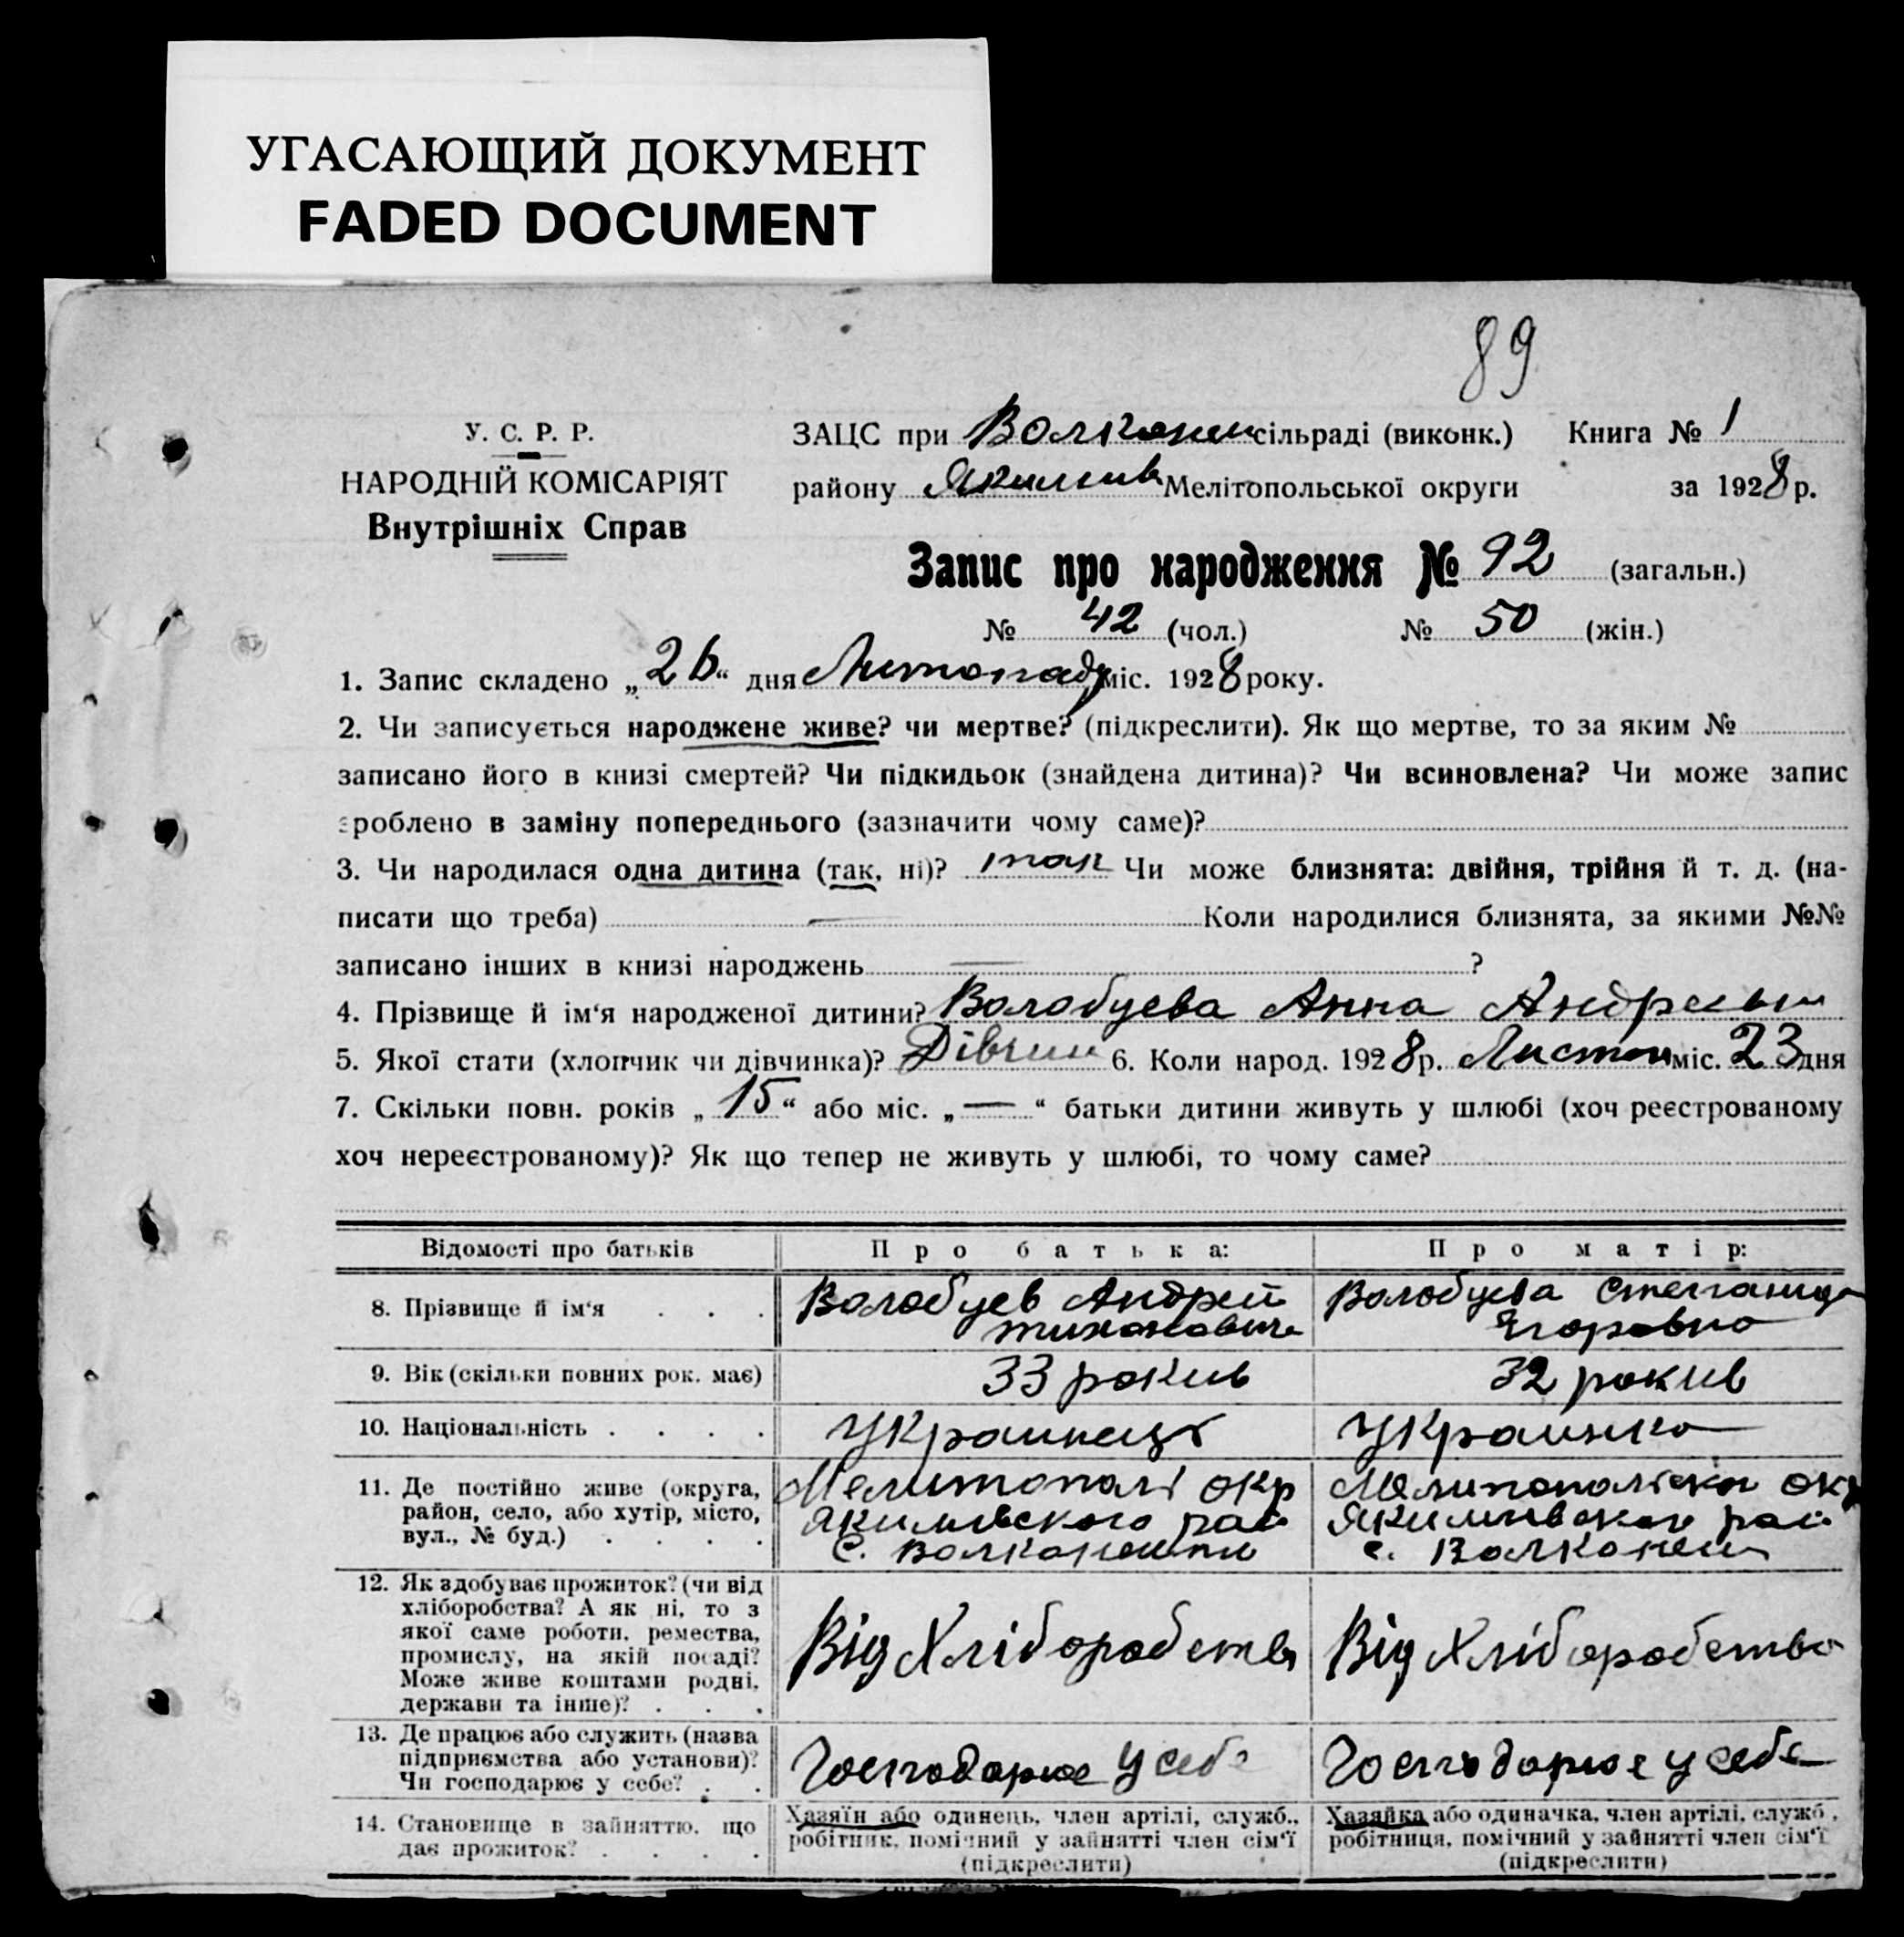 УГАСАЮЩИЙ ДОКУМЕНТ
FADED DOCUMENT
89
У. С. Р. Р.
НАРОДНІЙ КОМІСАРІЯТ
Внутрішніх Справ
ЗАЦС при Волканеш сільраді (виконк.) Книга № 1
району Якимив Мелітопольської округи за 1928 р.
Запис про народження № 92 (загальн.)
№ 42 (чол.) № 50 (жін.)
1. Запис складено „26“ дня Листопаду міс. 1928 року.
2. Чи записується народжене живе? чи мертве? (підкреслити). Як що мертве, то за яким №
записано його в книзі смертей? Чи підкидьок (знайдена дитина)? Чи всиновлена? Чи може запис
зроблено в заміну попереднього (зазначити чому саме)?
3. Чи народилася одна дитина (так, ні)? так Чи може близнята: двійня, трійня й т. д. (на-
писати що треба) — Коли народилися близнята, за якими №№
записано інших в книзі народжень — ?
4. Прізвище й ім‘я народженої дитини? Волобуева Анна Андреевн
5. Якої стати (хлопчик чи дівчинка)? Дівчин 6. Коли народ. 1928 р. Листоп міс. 23 дня
7. Скільки повн. років „15“ або міс. „—“ батьки дитини живуть у шлюбі (хоч реєстрованому
хоч нереєстрованому)? Як що тепер не живуть у шлюбі, то чому саме?
Відомості про батьків Про батька: Про матір:
8. Прізвище й ім‘я . . . Волобуев Андрей Волобуева Степанида
Тихонович Егоровна
9. Вік (скільки повних рок. має) 33 рокив 32 рокив
10. Національність . . . . Украинець Украинка
11. Де постійно живе (округа, Мелитополь окр Мелитопольска окр
район, село, або хутір, місто, Якимивского рай Якимивского рай
вул., № буд.) . . . . с. Волканешти с. Волканеш
12. Як здобуває прожиток? (чи від
хліборобства? А як ні, то з
якої саме роботи, ремества, Від Хліборобства Від Хліборобства
промислу, на якій посаді?
Може живе коштами родні,
держави та інше)? . . .
13. Де працює або служить (назва
підприємства або установи)? Господарює у себе Господарює у себе
Чи господарює у себе? . .
14. Становище в зайняттю, що Хазяїн або одинець, член артілі, служб., Хазяйка або одиначка, член артілі, служб.,
дає прожиток? . . . . робітник, помічний у зайнятті член сім‘ї робітниця, помічний у зайнятті член сім‘ї
(підкреслити) (підкреслити)